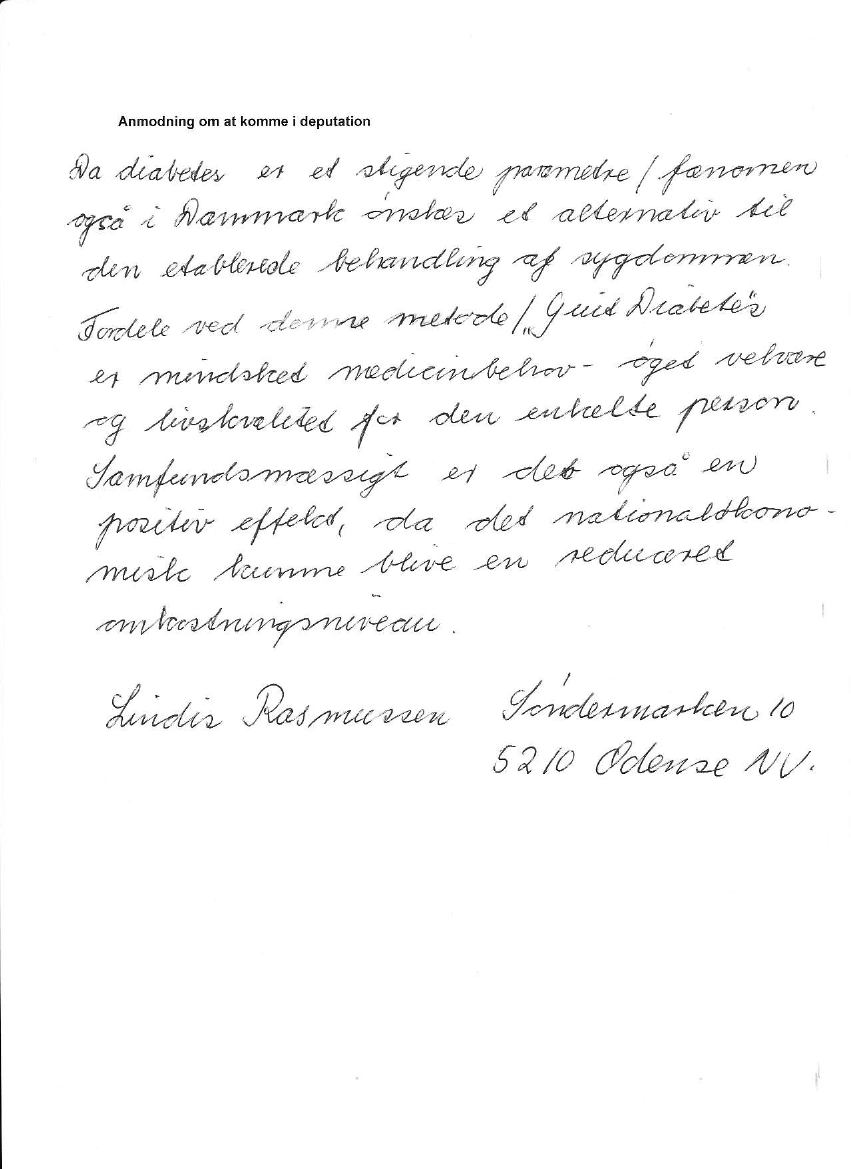 Anmodning om at komme i deputation
Da diabetes er et stigende parametre / fænomen
også i Dammark ønskes et alternativ til
den etablerede behandling af sygdommen.
Fordele ved denne metode / "Quit Diabetes"
er mindsket medicinbehov - øget velvære
og livskvalitet for den enkelte person.
Samfundsmæssigt er det også en
positiv effekt, da det nationaløkono-
misk kunne blive en reduceret
omkostningsniveau.
Lindis Rasmussen Søndermarken 10
5210 Odense NV.